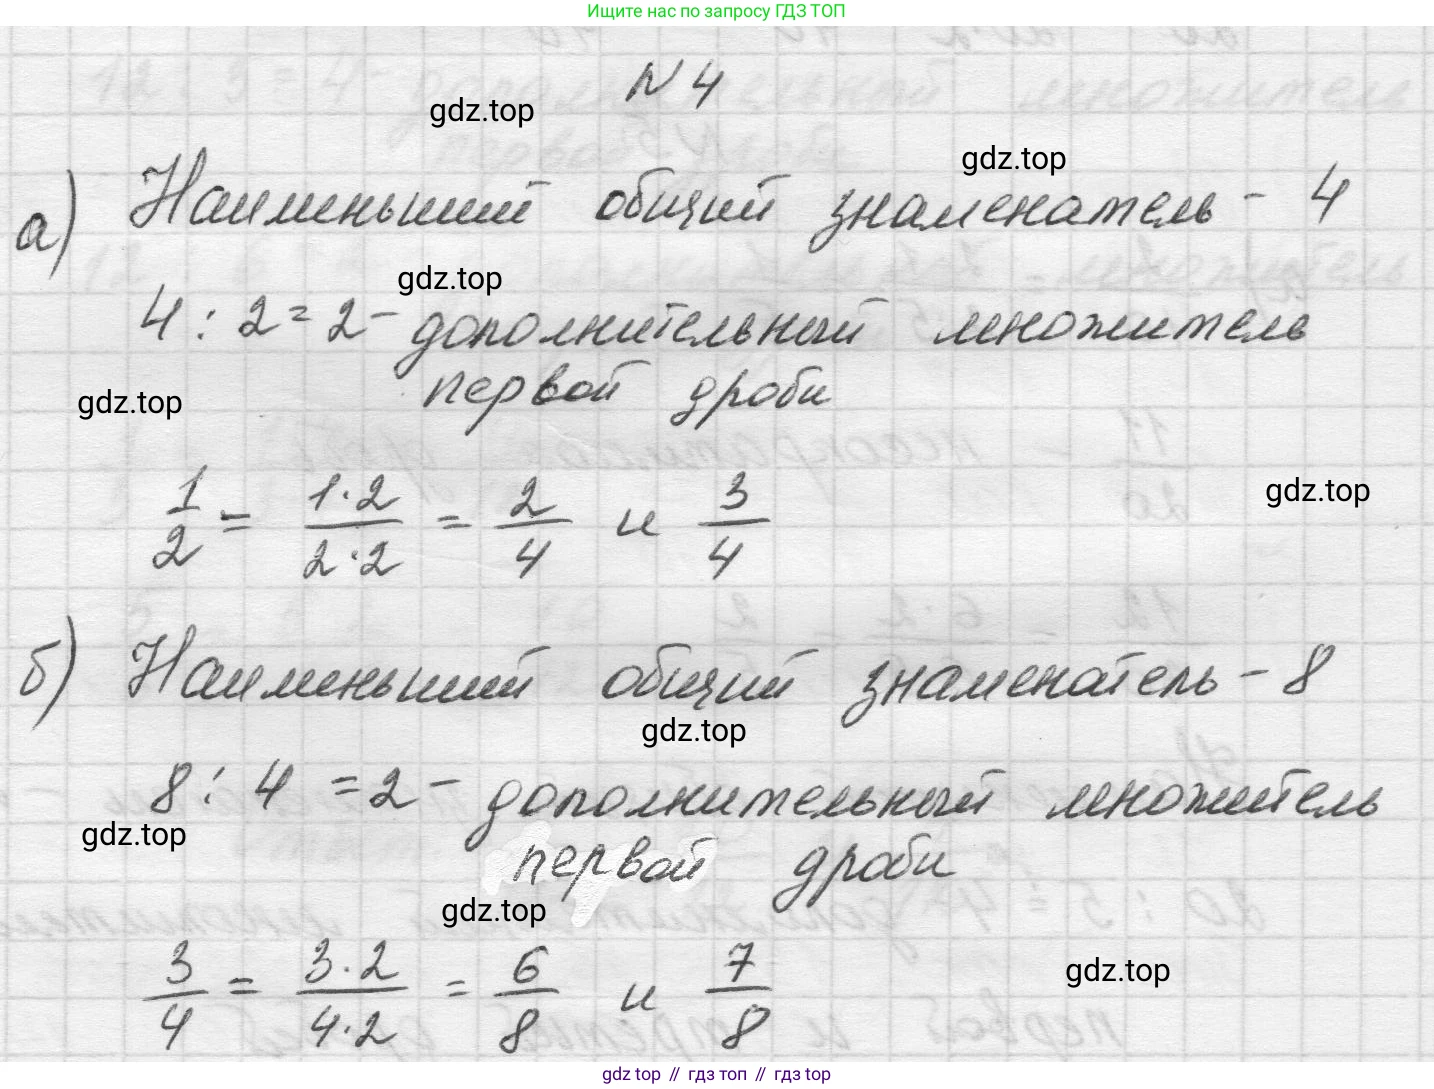 Ищите нас по запросу ГДЗ ТОП
N 4
gdz.top
gdz.top
а) Наименьший общий знаменатель - 4
gdz.top
4 : 2 = 2 - дополнительный множитель
первой дроби
gdz.top
gdz.top
1/2 = 1·2/2·2 = 2/4 и 3/4
б) Наименьший общий знаменатель - 8
gdz.top
8 : 4 = 2 - дополнительный множитель
gdz.top
первой дроби
gdz.top
3/4 = 3·2/4·2 = 6/8 и 7/8
gdz.top
gdz top // гдз топ // гдз top